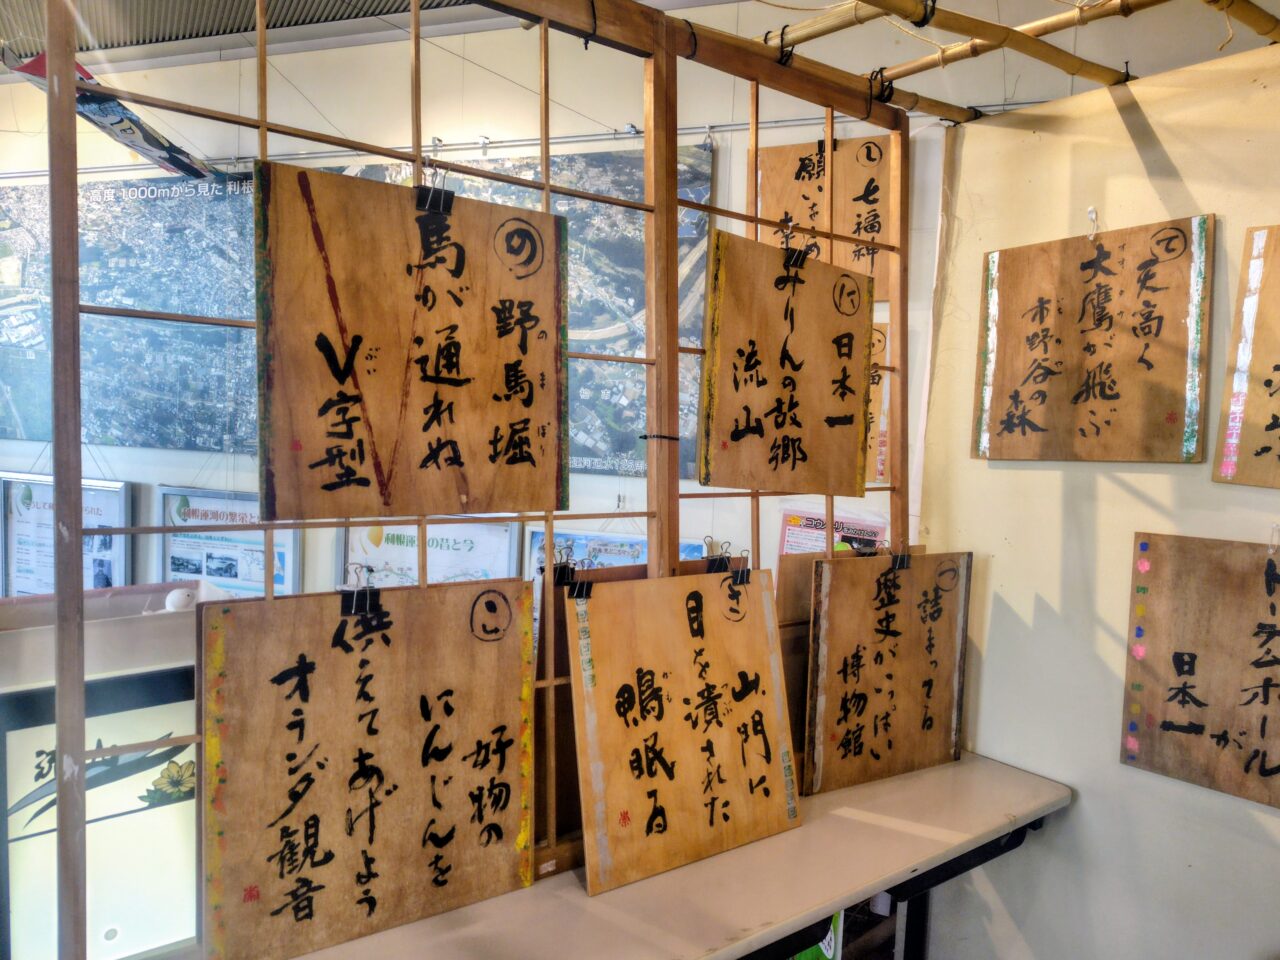 高度1000mから見た利根
の
野馬堀
のまぼり
馬が通れぬ
V字型
ぶい
に
日本一
みりんの故郷
流山
し
七福神
願いをこめ
て
天高く
大鷹が飛ぶ
市野谷の森
こ
好物の
にんじんを
供えてあげよう
オランダ観音
き
山門に
目を潰された
つぶ
鴨眠る
かも
つ
詰まってる
歴史がいっぱい
博物館
トーテムポール
が
日本一
利根運河の繁栄と
利根運河の昔と今
コウノトリ